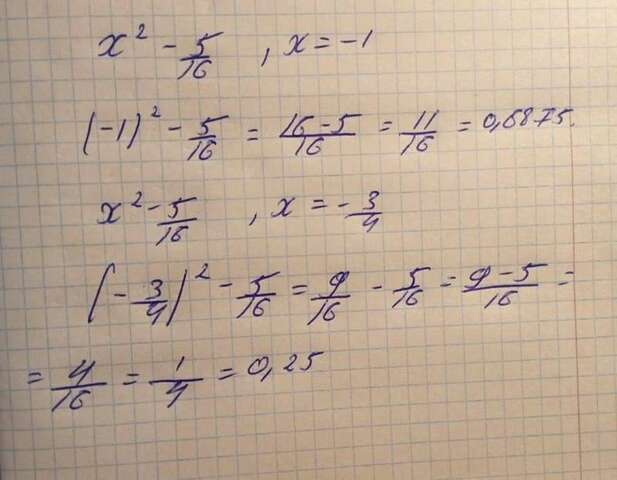 x² - 5/16 , x = -1
(-1)² - 5/16 = (16-5)/16 = 11/16 = 0,6875.
x² - 5/16 , x = -3/4
(-3/4)² - 5/16 = 9/16 - 5/16 = (9-5)/16 =
= 4/16 = 1/4 = 0,25